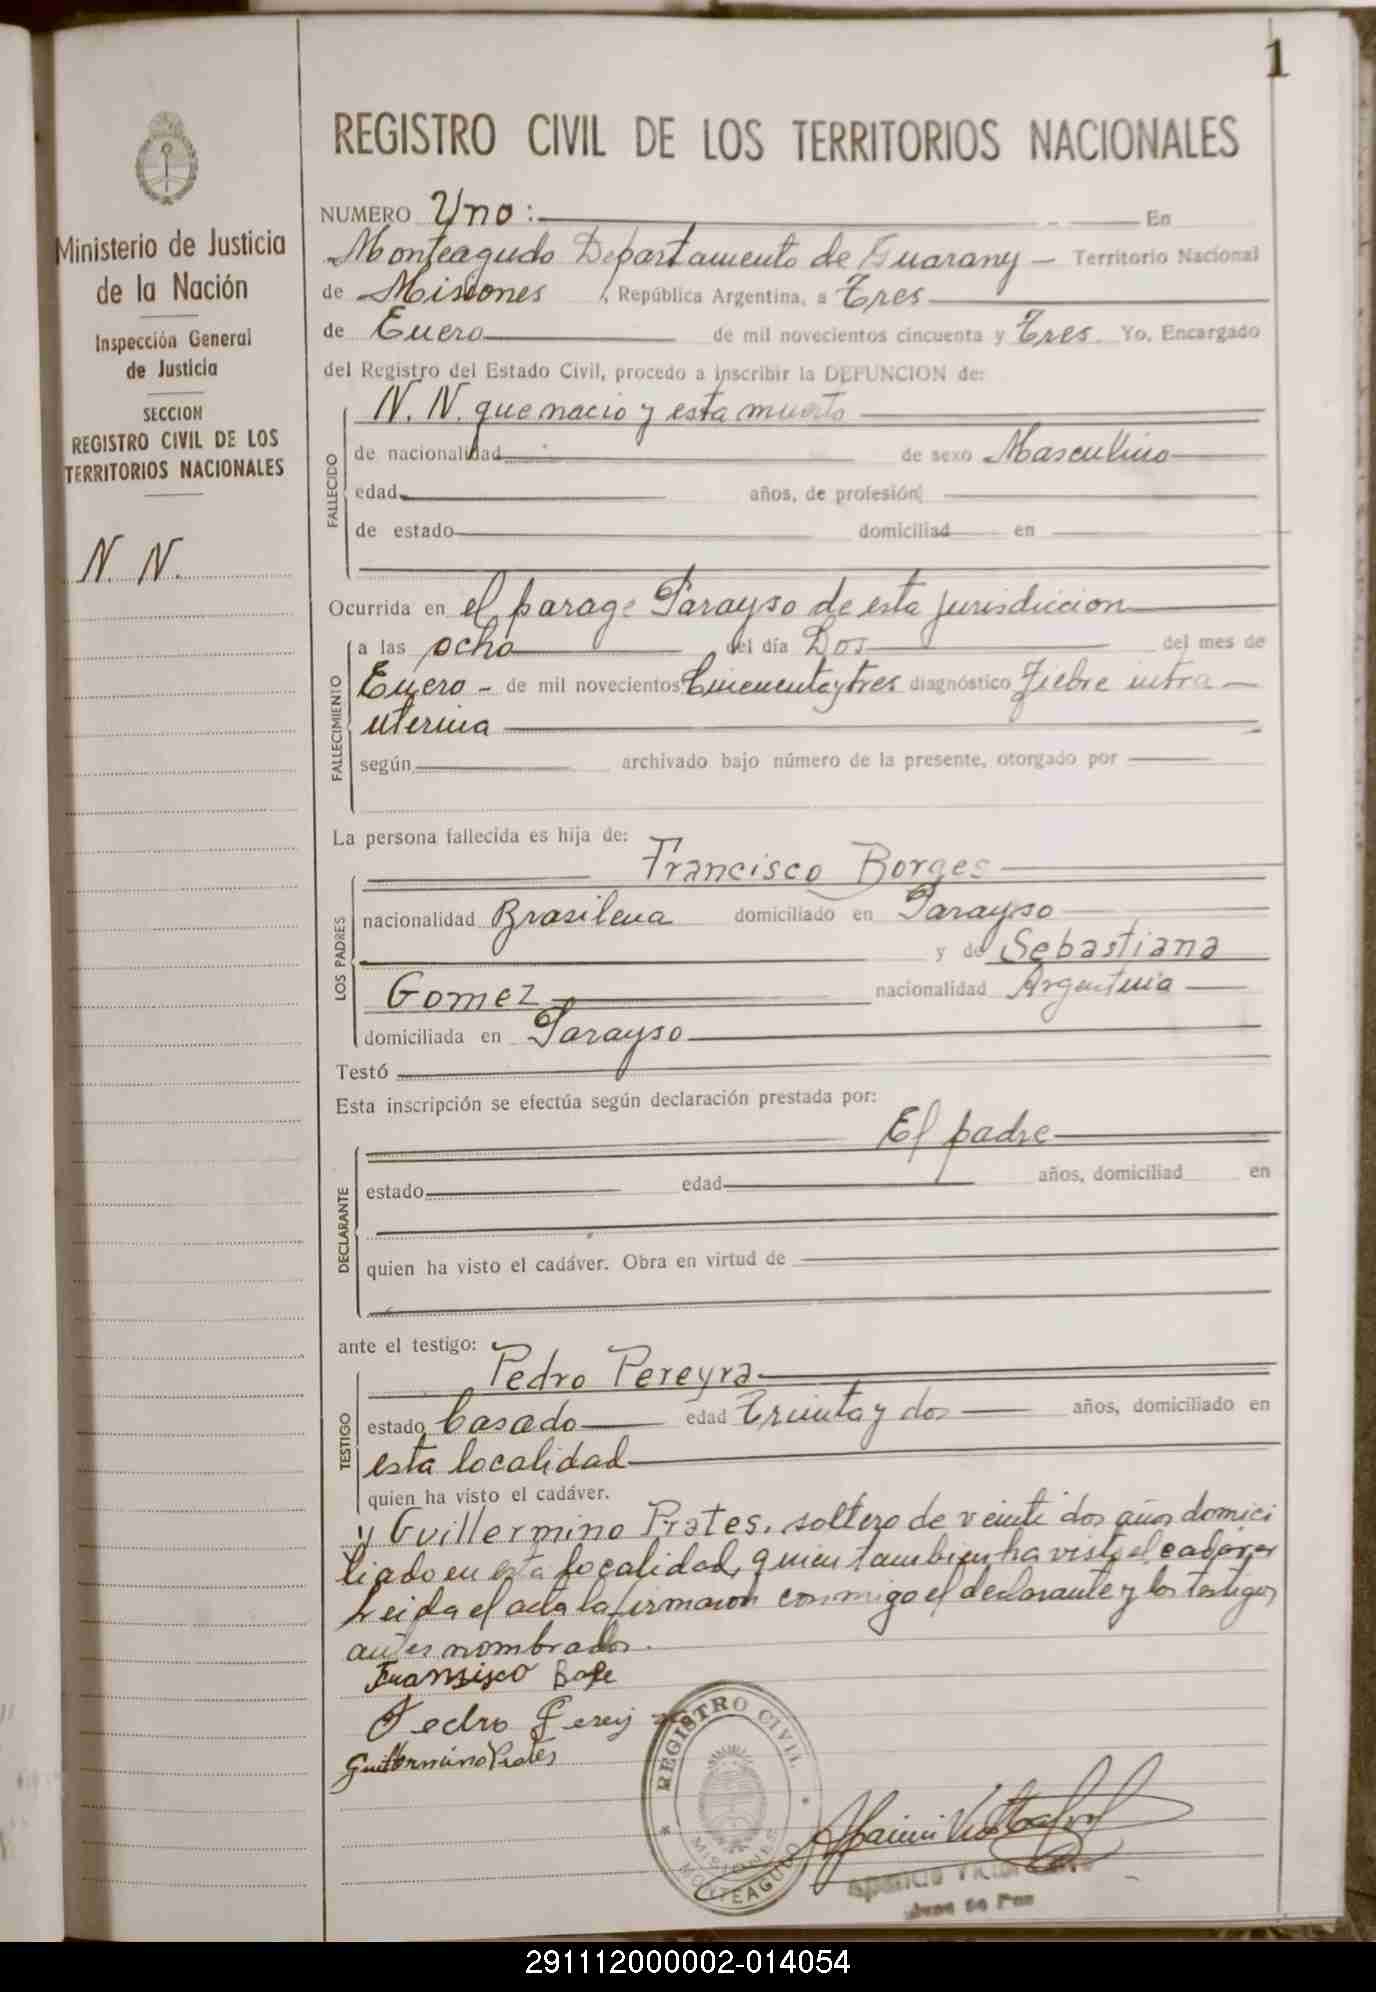 1
REGISTRO CIVIL DE LOS TERRITORIOS NACIONALES
Ministerio de Justicia
de la Nación
Inspección General
de Justicia
SECCION
REGISTRO CIVIL DE LOS
TERRITORIOS NACIONALES
N. N.
NUMERO Uno : En
Monteagudo Departamento de Guarany - Territorio Nacional
de Misiones, República Argentina, a Tres
de Enero de mil novecientos cincuenta y Tres. Yo, Encargado
del Registro del Estado Civil, procedo a inscribir la DEFUNCION de:
FALLECIDO
N. N. que nacio y esta muerto
de nacionalidad de sexo Masculino
edad años, de profesión
de estado domiciliad en
Ocurrida en el parage Parayso de esta jurisdiccion
FALLECIMIENTO
a las ocho del día Dos del mes de
Enero - de mil novecientos Cincuentaytres diagnóstico Fiebre intra -
uterina
según archivado bajo número de la presente, otorgado por
La persona fallecida es hija de:
LOS PADRES
Francisco Borges
nacionalidad Brasilena domiciliado en Parayso
y de Sebastiana
Gomez nacionalidad Argentina
domiciliada en Parayso
Testó
Esta inscripción se efectúa según declaración prestada por:
DECLARANTE
El padre
estado edad años, domiciliad en
quien ha visto el cadáver. Obra en virtud de
ante el testigo:
TESTIGO
Pedro Pereyra
estado Casado edad Treinta y dos años, domiciliado en
esta localidad
quien ha visto el cadáver.
y Guillermino Prates, soltero de veinte dos años domici
liado en esta localidad, quien tambien ha visto el cadaver
Leida el acta la firmaron conmigo el declarante y los testigos
antes nombrados.
Fransisco
Pedro
Guillermino Prates
REGISTRO CIVIL
MISIONES
MONTEAGUDO
Aparicio
Juez de Paz
291112000002-014054